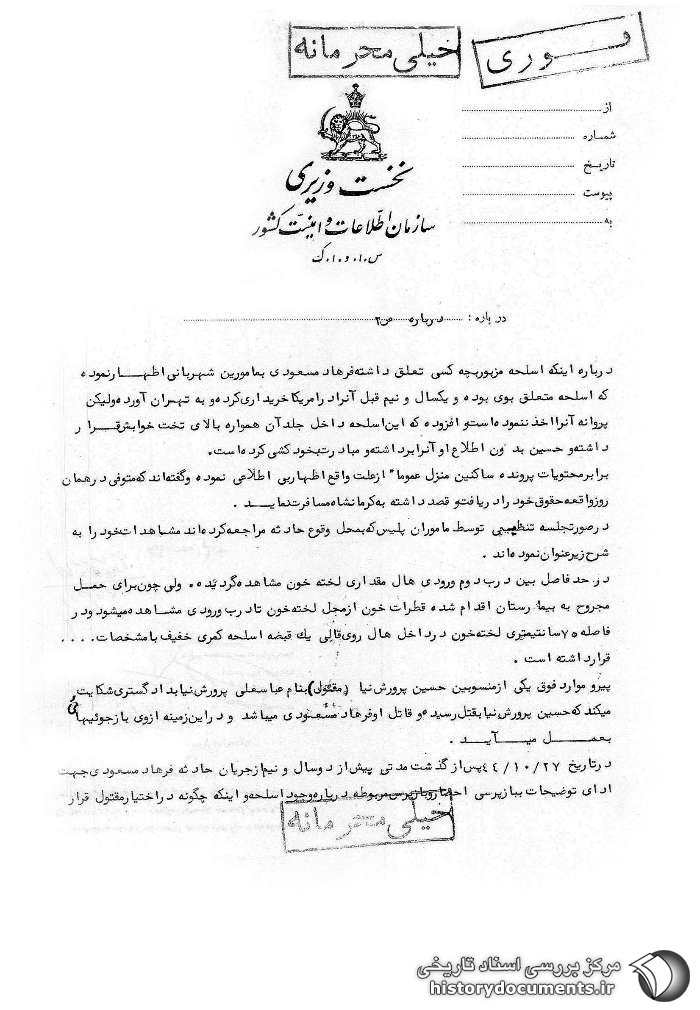 خیلی محرمانه
فوری
از
شماره
تاریخ
پیوست
به
نخست وزیری
سازمان اطلاعات و امنیت کشور
س.ا.و.ا.ک
درباره : درباره ص۲
درباره اینکه اسلحه مزبور بچه کسی تعلق داشته فرهاد مسعودی بمامورین شهربانی اظهار نموده
که اسلحه متعلق بوی بوده و یکسال و نیم قبل آنرا در امریکا خریداری کرده و به تهران آورده ولیکن
پروانه آنرا اخذ ننموده است و افزوده که این اسلحه داخل جلد آن همواره بالای تخت خوابش قرار
داشته و حسین بدون اطلاع او آنرا برداشته و مبادرت بخودکشی کرده است.
برابر محتویات پرونده ساکنین منزل عموما" از علت واقع اظهار بی اطلاعی نموده و گفته اند که متوفی در همان
روز واقعه حقوق خود را دریافت و قصد داشته به کرمانشاه مسافرت نماید .
در صورتجلسه تنظیمی توسط ماموران پلیس که بمحل وقوع حادثه مراجعه کرده اند مشاهدات خود را به
شرح زیر عنوان نموده اند .
در حد فاصل بین درب دوم ورودی هال مقداری لخته خون مشاهده گردیده. ولی چون برای حمل
مجروح به بیمارستان اقدام شده قطرات خون از محل لخته خون تا درب ورودی مشاهده میشود و در
فاصله ۷۵ سانتیمتری لخته خون در داخل هال روی قالی یك قبضه اسلحه کمری خفیف با مشخصات ....
قرار داشته است .
پیرو موارد فوق یکی از منسوبین حسین پرورش نیا (مقتول) بنام عباسعلی پرورش نیا بدادگستری شکایت
میکند که حسین پرورش نیا بقتل رسیده و قاتل او فرهاد مسعودی میباشد و در این زمینه از وی بازجوئیهائی
بعمل میآید .
در تاریخ ۴۴/۱۰/۲۷ پس از گذشت مدتی بیش از دو سال و نیم از جریان حادثه فرهاد مسعودی جهت
ادای توضیحات ببازپرسی احضار و بازپرس مربوطه درباره وجود اسلحه و اینکه چگونه در اختیار مقتول قرار
خیلی محرمانه
مرکز بررسی اسناد تاریخی
historydocuments.ir